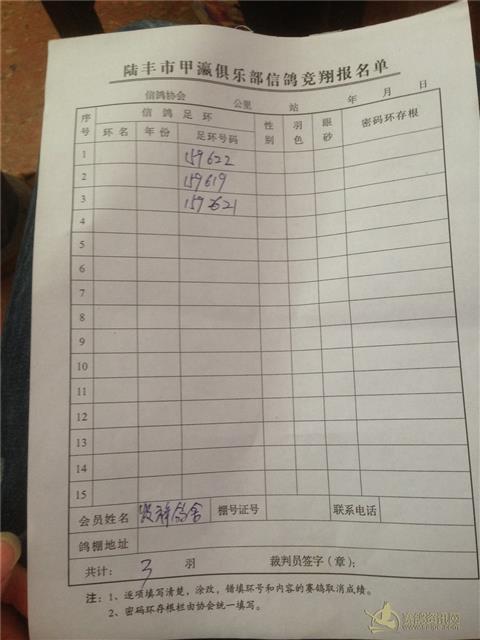 陆丰市甲瀛俱乐部信鸽竞翔报名单
信鸽协会 公里 站 年 月 日
序号 信鸽足环 性别 羽色 眼砂 密码环存根
环名 年份 足环号码
1 159622
2 159619
3 159621
4
5
6
7
8
9
10
11
12
13
14
15
会员姓名 鸽舍 棚号证号 联系电话
鸽棚地址
共计: 3 羽 裁判员签字(章):
注:1、逐项填写清楚,涂改,错填环号和内容的赛鸽取消成绩。
2、密码环存根栏由协会统一填写。